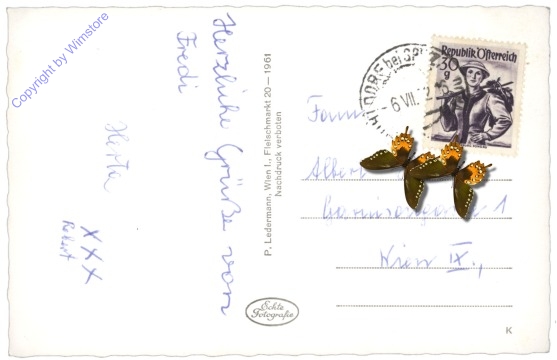 Copyright by Wimstore
Herzliche Grüße von
Fredi
Herta
XXX
Robert
P. Ledermann, Wien I., Fleischmarkt 20 — 1961
Nachdruck verboten
Echte
Fotografie
Republik Österreich
30
g
DORF bei SP
6 VII.
Fam
Albert
1
Wien IX.,
K